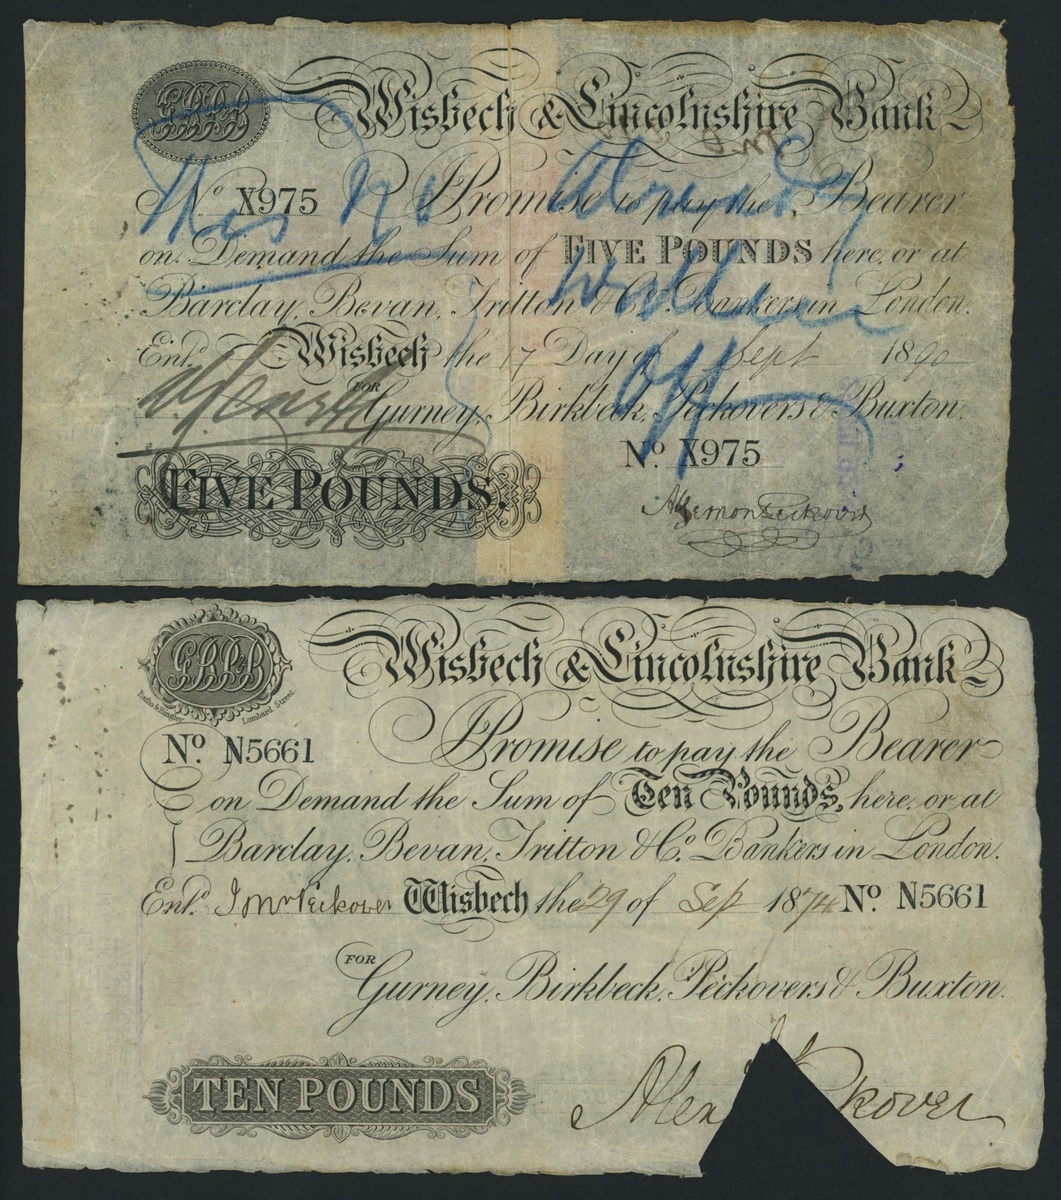 Wisbech & Lincolnshire Bank
No. X975 I Promise to pay the Bearer
on Demand the Sum of FIVE POUNDS here, or at
Barclay, Bevan, Tritton & Co. Bankers in London.
Entd. Wisbech the 17 Day of Sept 1890
FOR Gurney, Birkbeck, Peckovers & Buxton.
No. X975
FIVE POUNDS.
Algernon Peckover
This No
already
written
off
GBP&B
Batho & Bingley Lombard Street
Wisbech & Lincolnshire Bank
No. N5661 I Promise to pay the Bearer
on Demand the Sum of Ten Pounds, here, or at
Barclay, Bevan, Tritton & Co. Bankers in London.
Entd. Wisbech the 29 of Sep 1874 No. N5661
FOR
Gurney, Birkbeck, Peckovers & Buxton.
TEN POUNDS
Alex kover